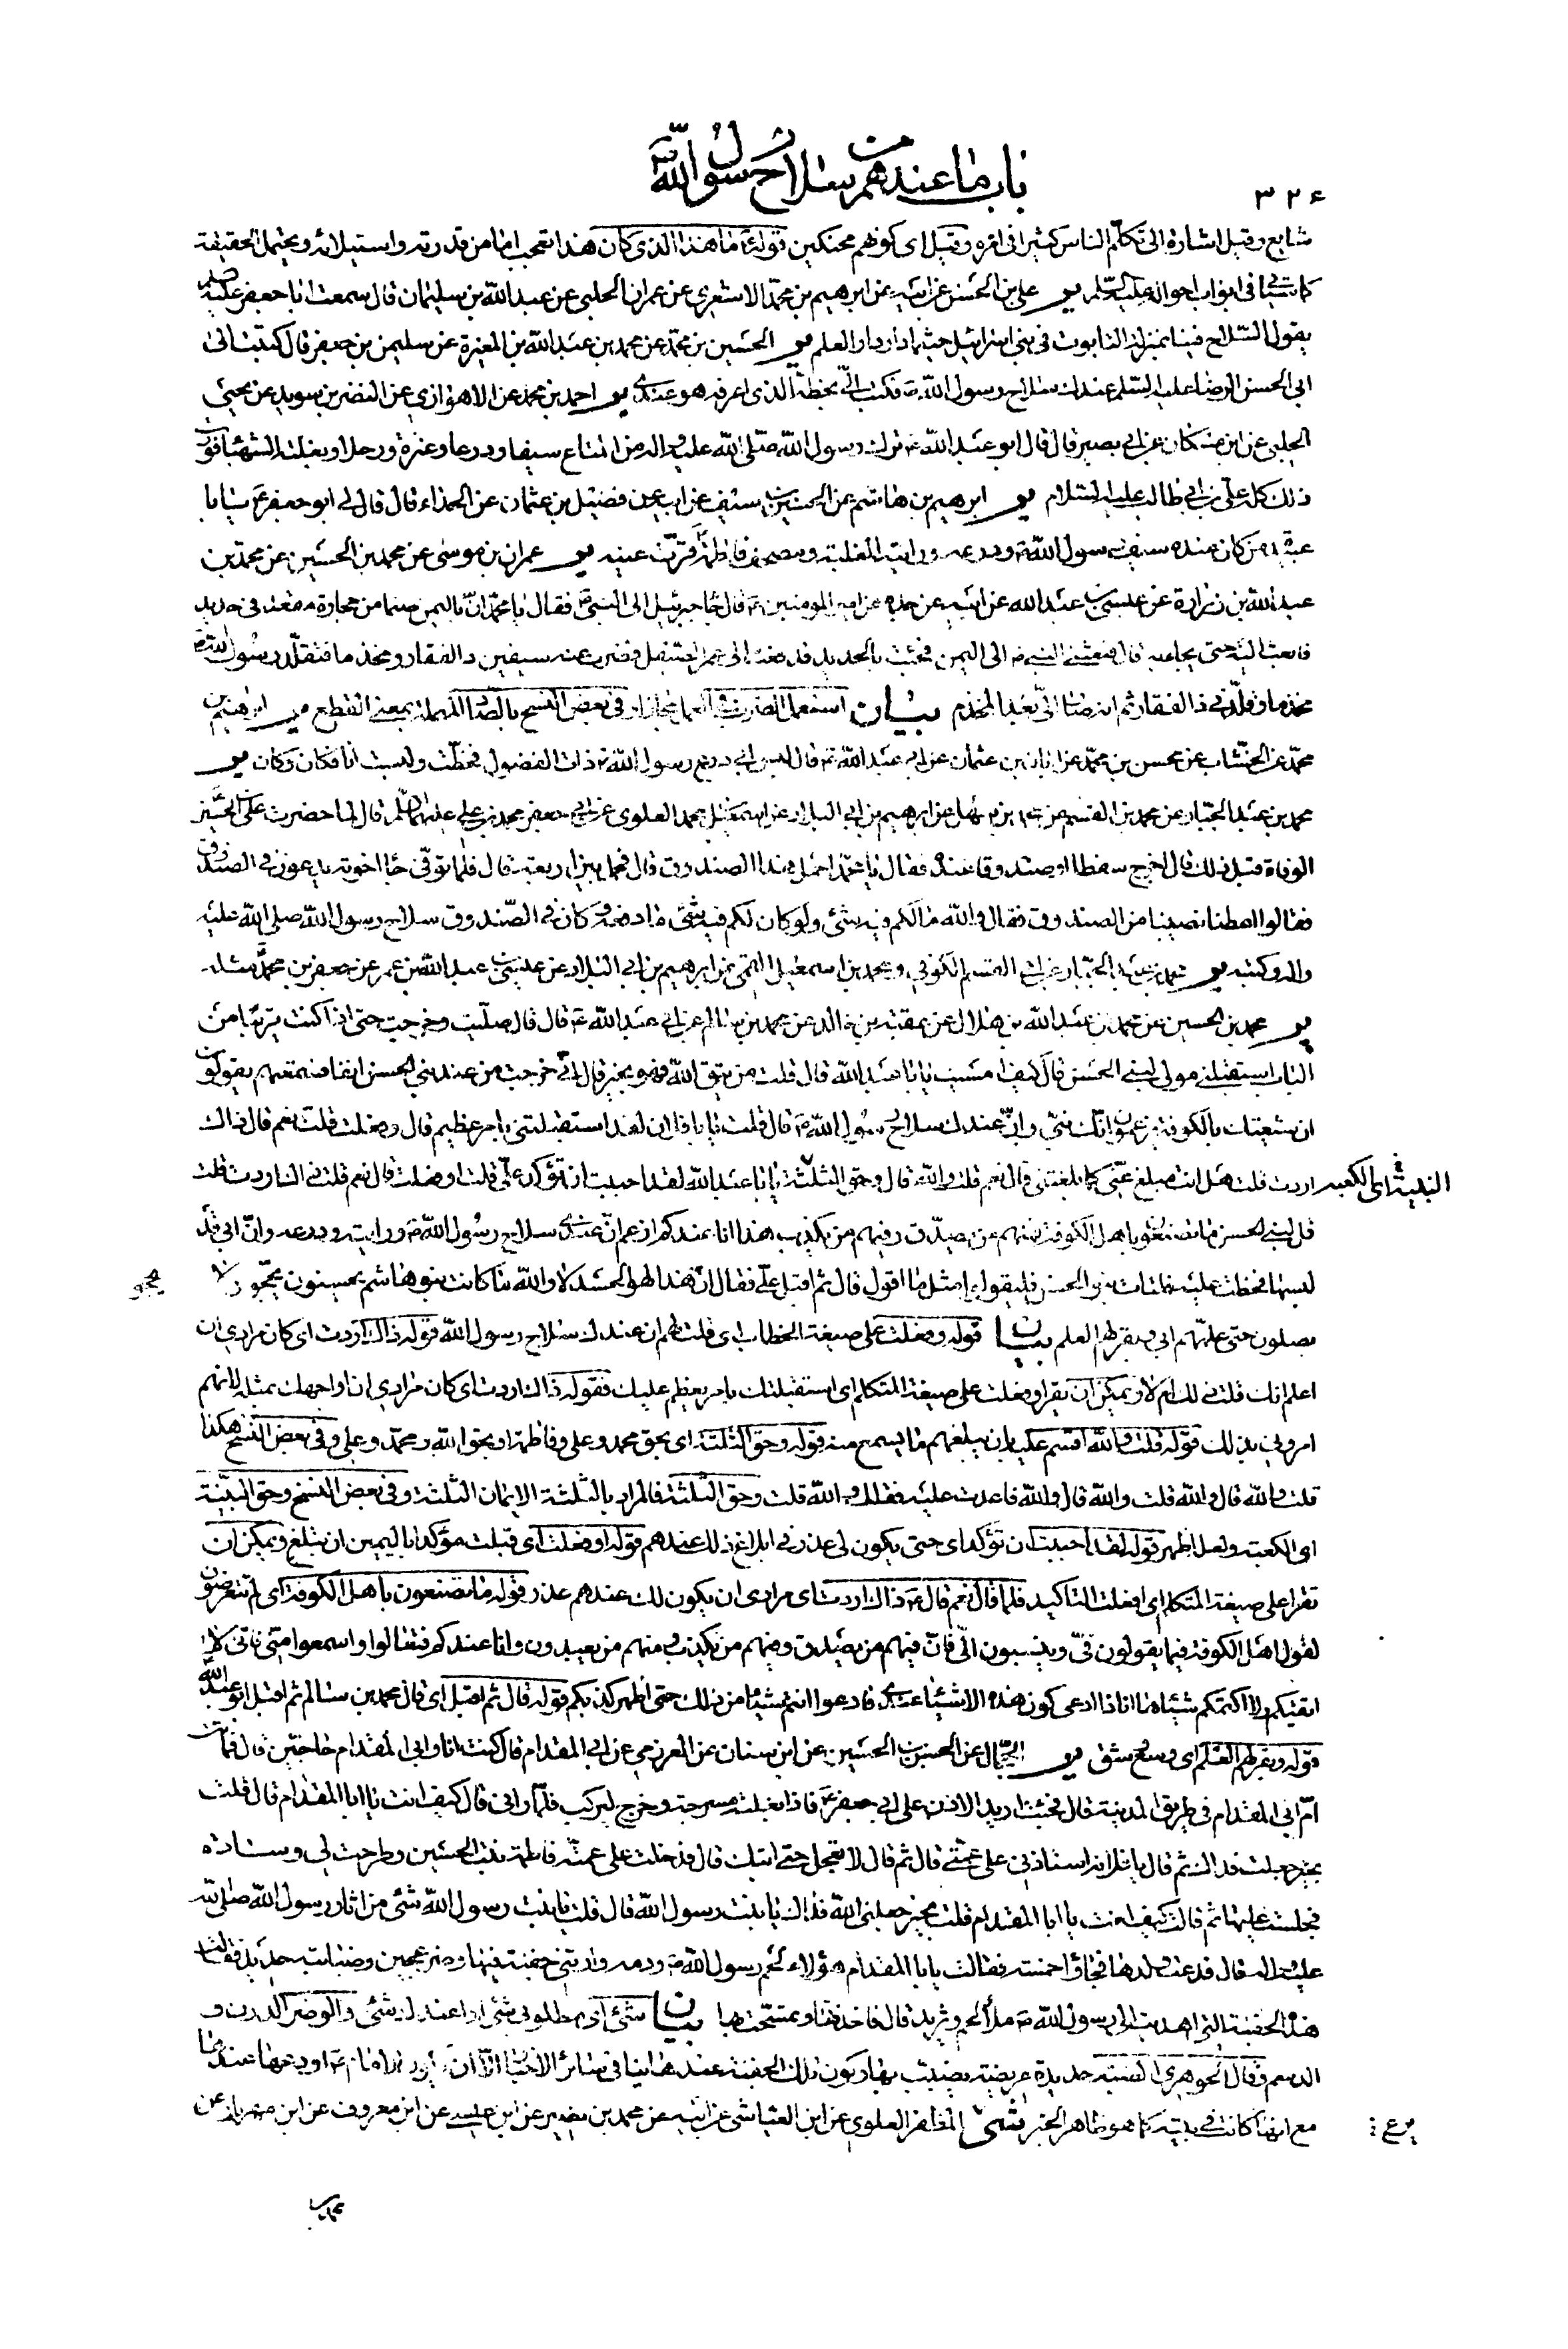 باب ما عندهم من سلاح رسول الله
٣٢٤
شايع وقيل اشارة الى تكلّم الناس كثيرا فى امره وقيل اى كونهم محنكين قوله ما هذا الذى كان هذا تعجب امّا من قدرته واستيلائه ويحتمل الحقيقة
كما سيأتى فى ابواب احواله عليه السّلم ير على بن الحسن عن ابيه عن ابرهيم بن محمّد الاشعرى عن عمران الحلبى عن عبد الله بن سليمان قال سمعت ابا جعفر عليه السلم
يقول السّلاح فينا بمنزلة التابوت فى بنى اسرائيل حيثما دار دار العلم ير الحسين بن محمّد عن محمد بن عبد الله بن المغيرة عن سليمن بن جعفر قال كتبت الى
ابى الحسن الرضا عليه السّلم عندك سلاح رسول الله ص فكتب الىّ بخطه الذى اعرفه هو عندى ير احمد بن محمد عن الاهوازى عن النضر بن سويد عن يحيى
الحلبى عن ابن مسكان عن ابى بصير قال قال ابو عبد الله ع ترك رسول الله صلى الله عليه واله من المتاع سيفا ودرعا وعنزة ورحلا وبغلته الشهباء فورث
ذلك كله على بن ابى طالب عليه السّلام ير ابرهيم بن هاشم عن الحسين بن سيف عن ابيه عن فضيل بن عثمان عن الحذاء قال قال لى ابو جعفر ع يا با
عبيدة من كان عنده سيف رسول الله ص ودرعه ورايته المغلبة ومصحف فاطمة ع قرّت عينه ير عمران بن موسى عن محمد بن الحسين عن محمد بن
عبد الله بن زرارة عن عيسى بن عبد الله عن ابيه عن جده عن امير المومنين ع قال جاء جبرئيل الى النبى ص فقال يا محمّد انّ باليمن صنما من حجارة مقعد فى حديد
فابعث اليه حتى يجاء به قال فبعثنى النبى ص الى اليمن فجئت بالحديد فدفعته الى عمر الصيقل فضرب عنه سيفين ذا الفقار ومخذما فتقلّد رسول الله ص
مخذما وقلّدنى ذا الفقار ثم انه صار الىّ بعد المخذم بيان استعمل الضرب فى العمل مجازا وفى بعض النسخ بالصّاد المهملة بمعنى القطع ير ابرهيم بن
محمّد عن الخشّاب عن محسن بن محمّد عن ابان بن عثمان عن ابى عبد الله ع قال لبس ابى درع رسول الله ص ذات الفضول فخطّت ولبست انا فكان وكان ير
محمد بن عبد الجبّار عن محمد بن القسم عن ابرهيم بن ابى البلاد عن اسمعيل بن محمد العلوى عن ابى جعفر محمد بن على عليهما السّلم قال لما حضرت على بن الحسين
الوفاة قبل ذلك قال اخرج سفطا او صندوقا عنده فقال يا محمّد احمل هذا الصندوق قال فحمل بين اربعة قال فلما توفّى جاء اخوته يدعون فى الصندوق
فقالوا اعطنا نصيبنا من الصندوق فقال والله ما لكم فيه شئ ولو كان لكم فيه شئ ما دفعه الىّ وكان فى الصّندوق سلاح رسول الله صلى الله عليه
واله وكتبه ير محمد بن عبد الجبّار عن ابى القسم الكوفى ومحمد بن اسمعيل القمى عن ابرهيم بن ابى البلاد عن عيسى بن عبد الله بن عمر عن جعفر بن محمّد مثله
ير محمد بن الحسين عن محمد بن عبد الله بن هلال عن عقبة بن خالد عن محمد بن سالم عن ابى عبد الله ع قال قال صلّيت وخرجت حتى اذا كنت قريبا من
الباب استقبلنى مولى لبنى الحسن قال كيف امسيت يا ابا عبد الله قال قلت من يتق الله فهو بخير قال انّى خرجت من عند بنى الحسن انفا فسمعتهم يقولون
ان شيعتك بالكوفة يزعمون انّك نبىّ وانّ عندك سلاح رسول الله ص قال قلت يا با فلان لقد استقبلتنى بامر عظيم قال وفعلت قلت نعم قال ذاك
اردت قلت هل انت مبلغ عنّى كما بلغتنى قال نعم قلت والله قال وحق الثلثة يا ابا عبد الله لقد احببت ان تؤكد علىّ قلت او فعلت قال نعم قلت ذاك اردت قلت
البنية اى الكعبه
قل لبنى الحسن ما تصنعون باهل الكوفة فمنهم من يصدّق وفيهم من يكذب هذا انا عندكم ازعم انّ عندى سلاح رسول الله ص ورايته ودرعه وانّ ابى قد
لبسها فخطت عليه فليأت بنو الحسن فليقولوا مثل ما اقول قال ثم اقبل علىّ فقال انّ هذا لهو الحسد لا والله ما كانت بنو هاشم يحسنون يحجّون ولا
يصلون حتى علّمهم ابى وبقر لهم العلم بيان قوله وفعلت على صيغة الخطاب اى قلت لهم ان عندك سلاح رسول الله قوله ذاك اردت اى كان مرادى ان
اعلم انك قلت ذلك ام لا ويمكن ان يقرا وفعلت على صيغة المتكلم اى استقبلتك بامر يعظم عليك فقوله ذاك اردت اى كان مرادى ان اواجهك بمثله لانهم
امرونى بذلك قوله قلت والله اقسم عليه بان يبلغهم ما يسمع منه قوله وحق الثلثة اى بحق محمد وعلى وفاطمة او بحق الله ومحمّد وعلى وفى بعض النسخ هكذا
قلت والله قال والله قلت والله قال والله فاعدت عليه فقال والله قلت وحق الثلثة فالمراد بالثلثة الايمان الثلثة وفى بعض النسخ وحق البنيّة
اى الكعبة ولعله اظهر قوله لقد احببت ان تؤكد اى حتى يكون لى عذر فى ابلاغ ذلك عندهم قوله او فعلت اى قبلت مؤكدا باليمين ان تبلغ ويمكن ان
تقرا على صيغة المتكلم اى افعلت التاكيد فلما قال نعم قال ع ذاك اردت اى مرادى ان يكون لك عندهم عذر قوله ما تصنعون باهل الكوفة اى لم تتعرضون
لقول اهل الكوفة فيما يقولون فىّ وينسبون الىّ فانّ فيهم من يصّدق ومنهم من يكذب ومنهم من بعيدون وانا عندكم فتعالوا واسمعوا منّى فانى لا
اتقيكم ولا اكتمكم شيئا ها انا ذا ادعى كون هذه الاشيئا عندى فادعوا انتم شيئا من ذلك حتى اظهر كذبكم قوله قال ثم اقبل اى قال محمد بن سالم ثم اقبل ابو عبد الله
قوله وبقر لهم العلم اى وسع وشق ير الحجّال عن الحسن بن الحسين عن ابن سنان عن العرزمى عن ابى المقدام قال كنت انا وابى المقدام حاجّين قال فماتت
امّ ابى المقدام فى طريق المدينة قال فجئت اريد الاذن على ابى جعفر ع فاذا بغلته مسرجة وخرج ليركب فلمّا رانى قال كيف انت يا ابا المقدام قال قلت
بخير جعلت فداك ثم قال يا فلانه استاذنى على عمّتى قال ثم قال لا تعجل حتى اتيك قال فدخلت على عمّته فاطمة بنت الحسين وطرحت لى وسادة
فجلست عليها ثم قالت كيف انت يا ابا المقدام قلت بخير جعلنى الله فداك يا بنت رسول الله قال قلت يا بنت رسول الله شئ من اثار رسول الله صلى الله
عليه واله قال فدعت ولدها فجاؤا خمسة فقالت يا با المقدام هؤلاء لحم رسول الله ص ودمه وارتنى جفنة فيها وضر عجين وضبابته حديد فقالت
هذه الجفنة التى اهديت الى رسول الله ص ملأ لحم وثريد قال فاخذتها وتمسّحت بها بيان شئ اى مطلوبى شئ او اعندك شئ والوضر الدرن و
الدسم وقال الجوهرى الضبة حديدة عريضة يضبّب بها وكون تلك الجفنة عندها ينافى سائر الاخبار الا ان يكون الامام ع اودعها عندها
مع انها كانت فى بيته كما هو ظاهر الخبر شى المظفر العلوى عن ابن العياشى عن ابيه عن محمد بن نصير عن ابن عيسى عن ابن معروف عن ابن مهزيار عن